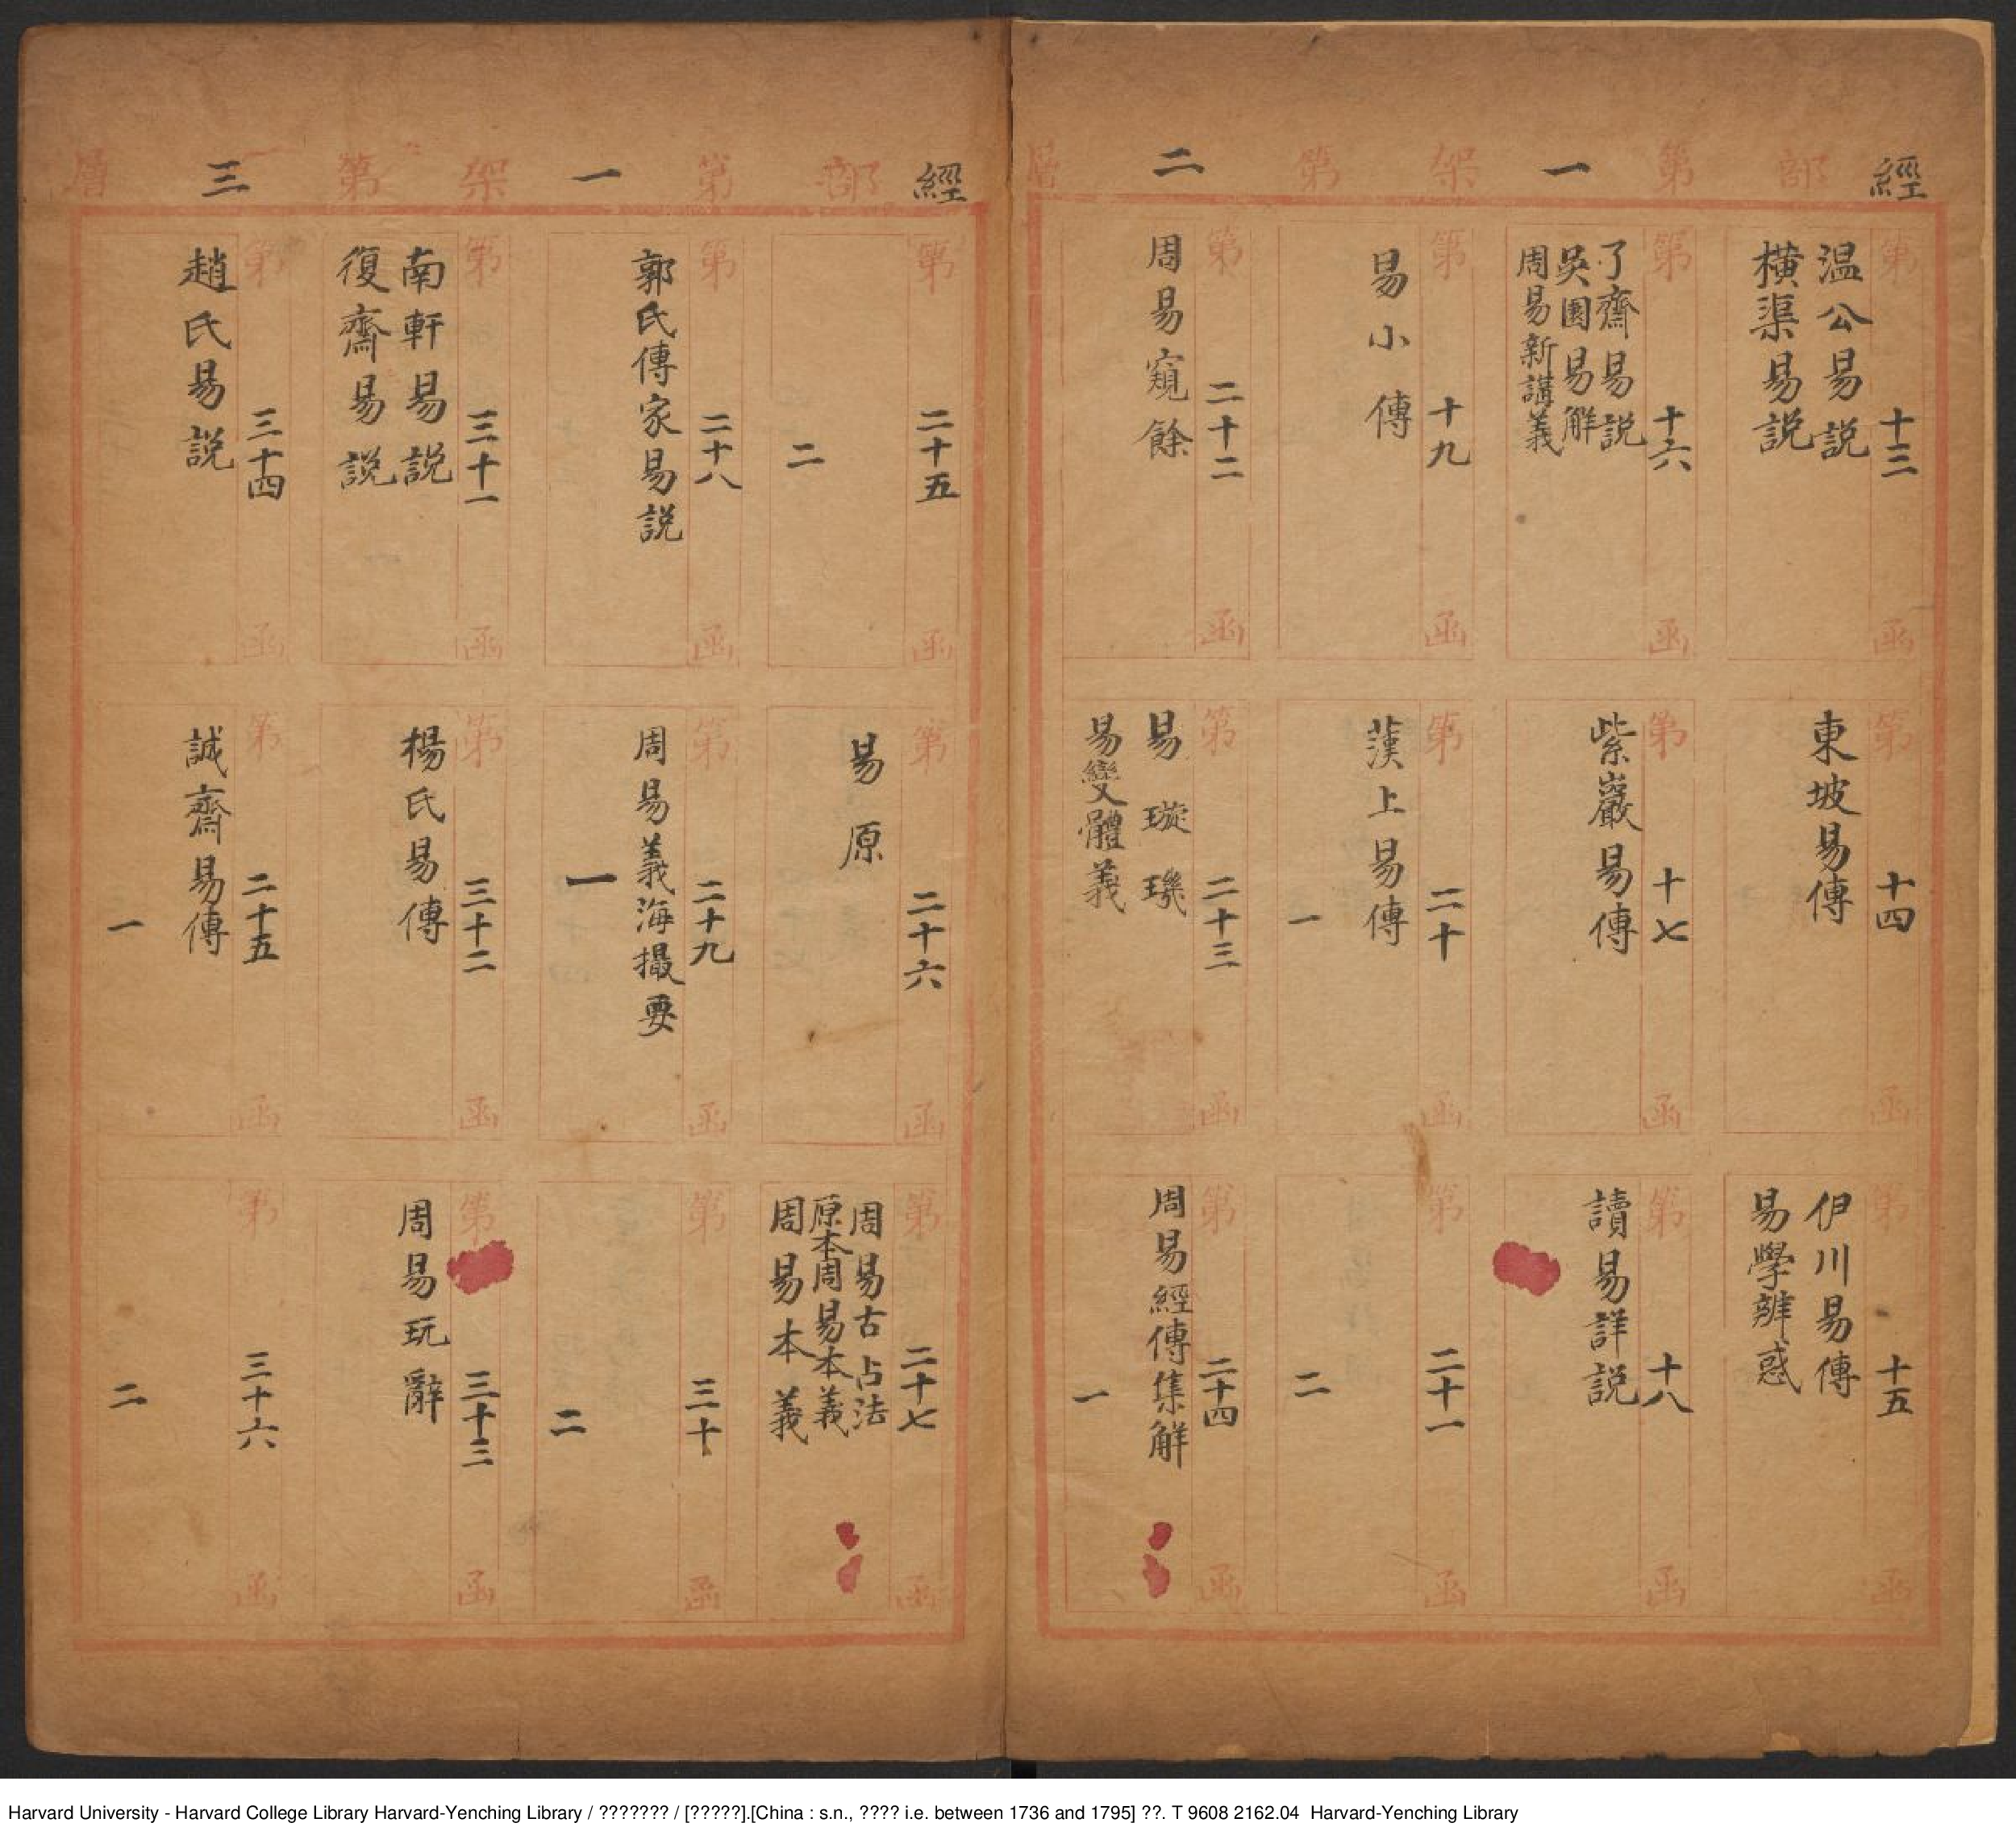 經部第一架第二層
第十三函
温公易説
橫渠易説
第十四函
東坡易傳
第十五函
伊川易傳
易學辨惑
第十六函
了齋易説
吳園易解
周易新講義
第十七函
紫巖易傳
第十八函
讀易詳説
第十九函
易小傳
第二十函
漢上易傳
一
第二十一函
二
第二十二函
周易窺餘
第二十三函
易璇璣
易變體義
第二十四函
周易經傳集解
一
經部第一架第三層
第二十五函
二
第二十六函
易原
第二十七函
周易古占法
原本周易本義
周易本義
第二十八函
郭氏傳家易説
第二十九函
周易義海撮要
一
第三十函
二
第三十一函
南軒易説
復齋易説
第三十二函
楊氏易傳
第三十三函
周易玩辭
第三十四函
趙氏易説
第二十五函
誠齋易傳
一
第三十六函
二
Harvard University - Harvard College Library Harvard-Yenching Library / ??????? / [?????].[China : s.n., ???? i.e. between 1736 and 1795] ??. T 9608 2162.04 Harvard-Yenching Library